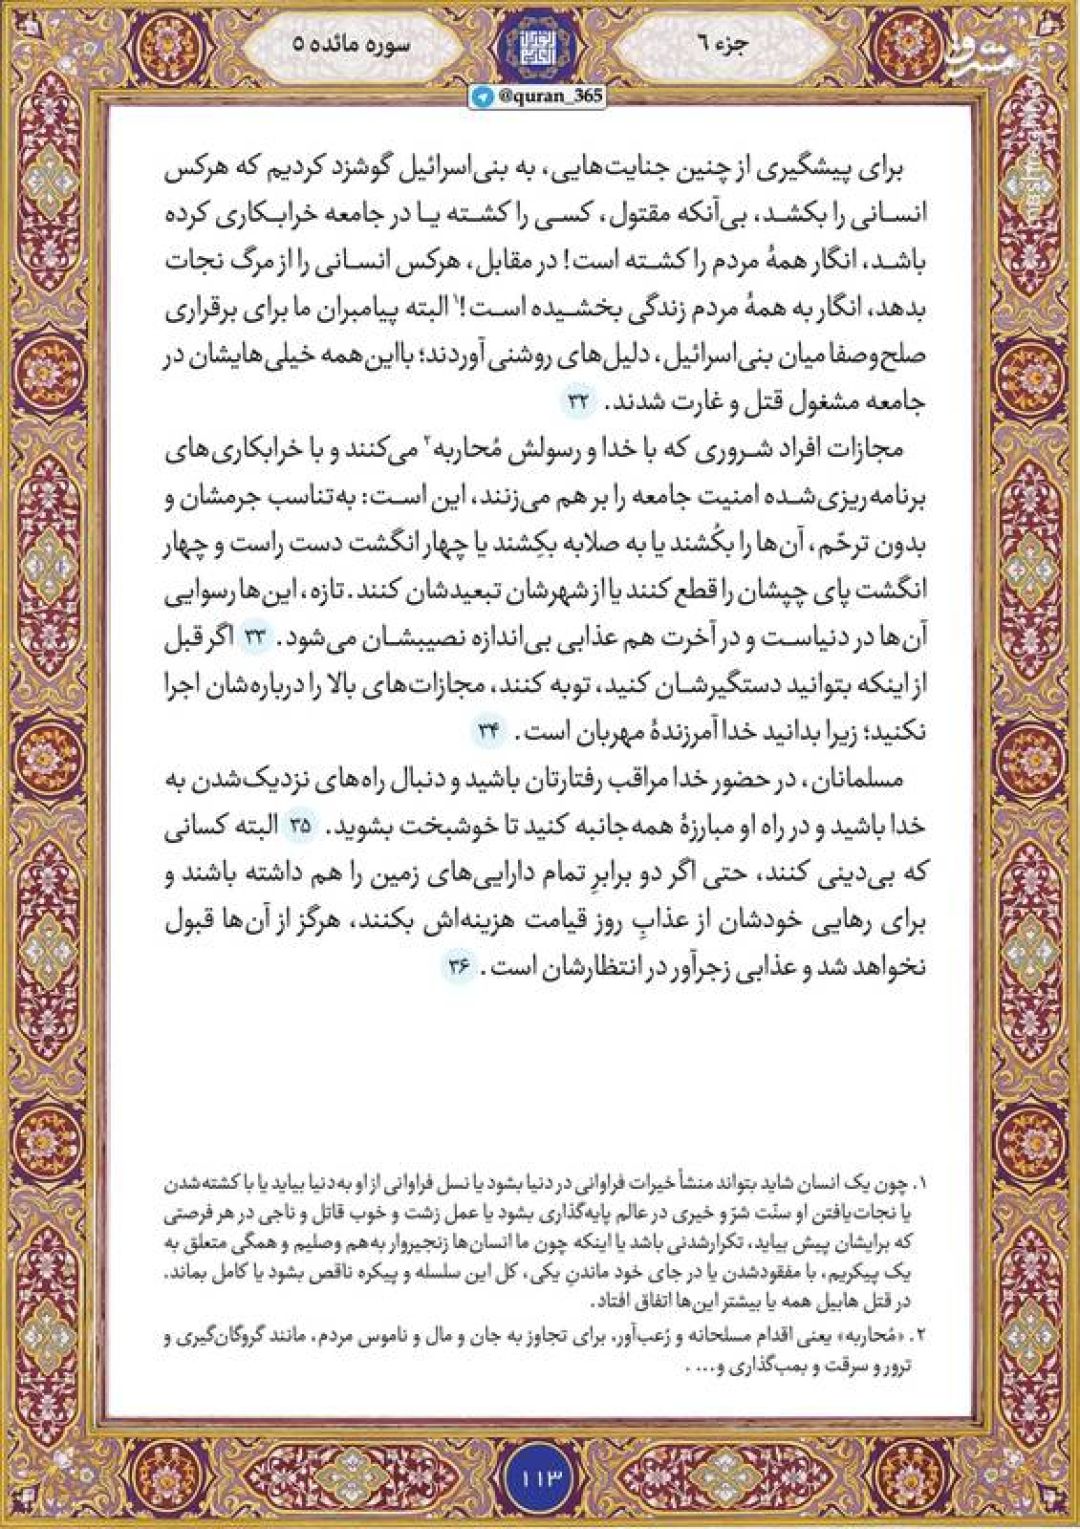 جزء ۶
سوره مائده ۵
مشرق
@quran_365
برای پیشگیری از چنین جنایت‌هایی، به بنی‌اسرائیل گوشزد کردیم که هرکس
انسانی را بکشد، بی‌آنکه مقتول، کسی را کشته یا در جامعه خرابکاری کرده
باشد، انگار همهٔ مردم را کشته است! در مقابل، هرکس انسانی را از مرگ نجات
بدهد، انگار به همهٔ مردم زندگی بخشیده است!۱ البته پیامبران ما برای برقراری
صلح‌وصفا میان بنی‌اسرائیل، دلیل‌های روشنی آوردند؛ بااین‌همه خیلی‌هایشان در
جامعه مشغول قتل و غارت شدند. ۳۲
مجازات افراد شروری که با خدا و رسولش مُحاربه۲ می‌کنند و با خرابکاری‌های
برنامه‌ریزی‌شده امنیت جامعه را بر هم می‌زنند، این است: به‌تناسب جرمشان و
بدون ترحّم، آن‌ها را بکُشند یا به صلابه بکِشند یا چهار انگشت دست راست و چهار
انگشت پای چپشان را قطع کنند یا از شهرشان تبعیدشان کنند. تازه، این‌ها رسوایی
آن‌ها در دنیاست و در آخرت هم عذابی بی‌اندازه نصیبشان می‌شود. ۳۳ اگر قبل
از اینکه بتوانید دستگیرشان کنید، توبه کنند، مجازات‌های بالا را درباره‌شان اجرا
نکنید؛ زیرا بدانید خدا آمرزندهٔ مهربان است. ۳۴
مسلمانان، در حضور خدا مراقب رفتارتان باشید و دنبال راه‌های نزدیک‌شدن به
خدا باشید و در راه او مبارزهٔ همه‌جانبه کنید تا خوشبخت بشوید. ۳۵ البته کسانی
که بی‌دینی کنند، حتی اگر دو برابرِ تمام دارایی‌های زمین را هم داشته باشند و
برای رهایی خودشان از عذابِ روز قیامت هزینه‌اش بکنند، هرگز از آن‌ها قبول
نخواهد شد و عذابی زجرآور در انتظارشان است. ۳۶
۱. چون یک انسان شاید بتواند منشأ خیرات فراوانی در دنیا بشود یا نسل فراوانی از او به‌دنیا بیاید یا با کشته‌شدن
یا نجات‌یافتن او سنّت شرّ و خیری در عالم پایه‌گذاری بشود یا عمل زشت و خوب قاتل و ناجی در هر فرصتی
که برایشان پیش بیاید، تکرارشدنی باشد یا اینکه چون ما انسان‌ها زنجیروار به‌هم وصلیم و همگی متعلق به
یک پیکریم، با مفقودشدن یا در جای خود ماندنِ یکی، کل این سلسله و پیکره ناقص بشود یا کامل بماند.
در قتل هابیل همه یا بیشتر این‌ها اتفاق افتاد.
۲. «مُحاربه» یعنی اقدام مسلحانه و رُعب‌آور، برای تجاوز به جان و مال و ناموس مردم، مانند گروگان‌گیری و
ترور و سرقت و بمب‌گذاری و... .
۱۱۳